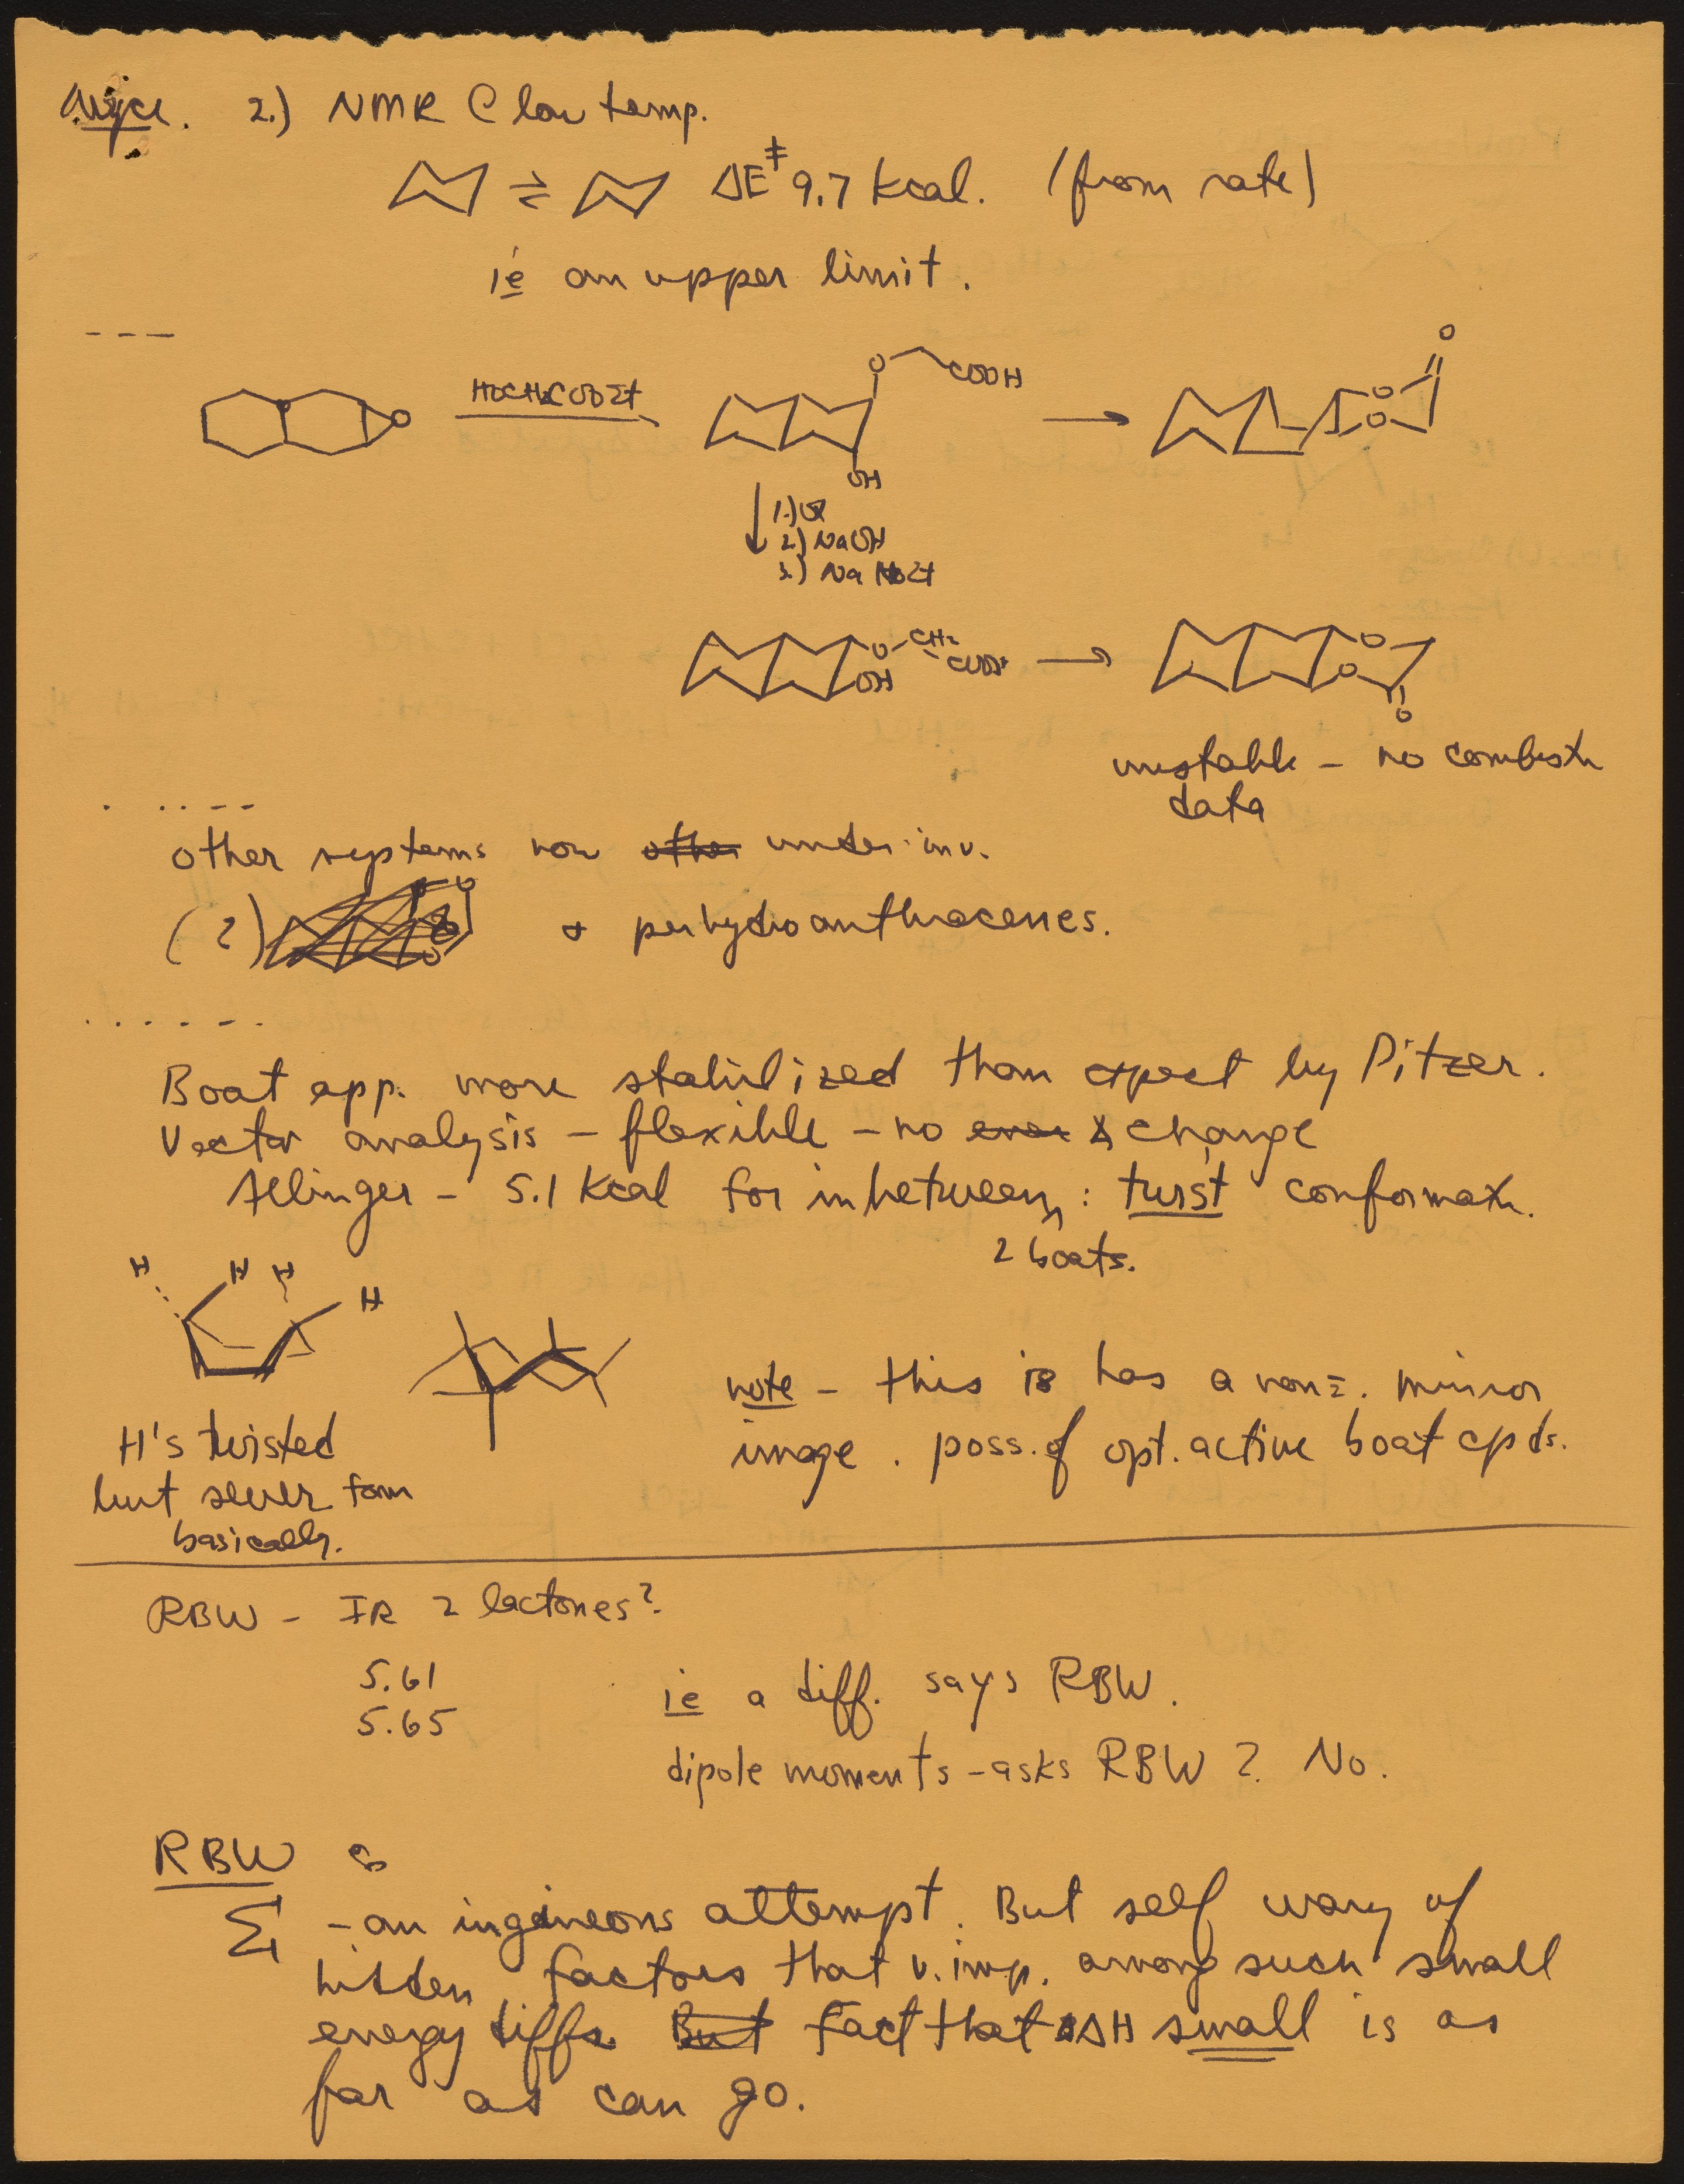 2.) NMR @ low temp.
⇌ ΔE‡ 9.7 Kcal. (from rate)
ie an upper limit.
---
O
HOCH2COOEt
O COOH
OH
O
O
O
1.) OX
2.) NaOH
3.)
O CH2
OH
O
O
O
unstable - no combustn
data
other systems now other under inv.
(2) & perhydroanthracenes.
Boat app. more stabilized than expect by Pitzer.
Vector analysis - flexible - no even ∡ change
Allinger - 5.1 Kcal for inbetween: twist conformatn.
2 boats.
H H H H
note - this is has a non=. mirror
image. poss. of opt. active boat cpds.
H's twisted
but sever form
basically.
RBW - IR 2 lactones?
5.61
5.65
ie a diff. says RBW.
dipole moments - asks RBW? No.
RBW
Σ - an ingeneous attempt. But self wary of
hidden factors that v. imp. among such small
energy diffs. But Fact that ΔΔH small is as
far as can go.